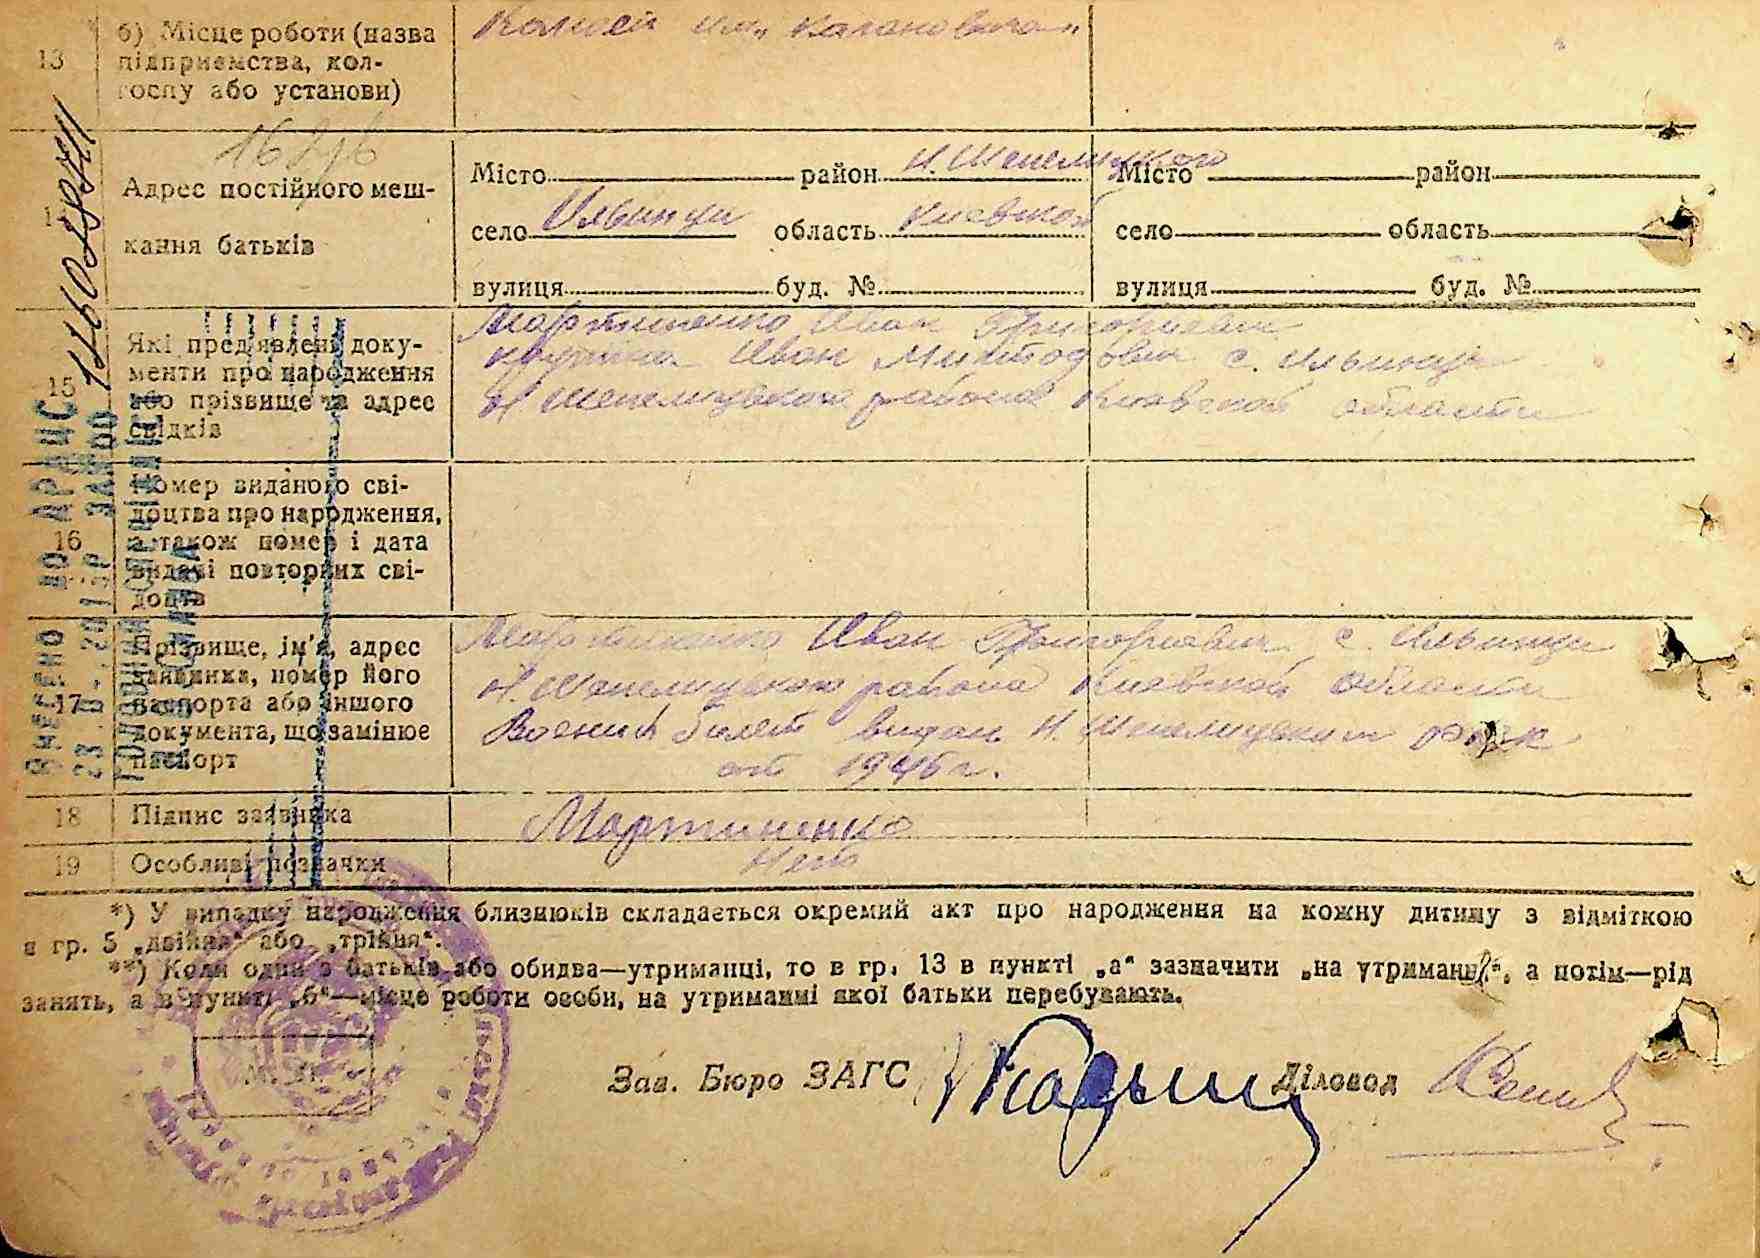 13 б) Місце роботи (назва підприємства, колгоспу або установи)
Колхоз им. Кагановича
Адрес постійного мешкання батьків
Місто район Н. Шепелицкого
село Ильинци область Киевской
вулиця буд. №
Місто район
село область
вулиця буд. №
15 Які пред'явлені документи про народження або прізвище та адрес свідків
Мартиненко Иван Григориевич
Иван с. Ильинци
Н Шепелицького района Киевской области
16 Номер виданого свідоцтва про народження, а також номер і дата видачі повторних свідоцтв
17 Прізвище, ім'я, адрес заявника, номер його паспорта або іншого документа, що замінює паспорт
Мартиненко Иван Григориевич с. Ильинци
Н. Шепелицького района Киевской области
Военний билет видан Н. Шепелицьким РВК
от 1946 г.
18 Підпис заявника
Мартиненко
19 Особливі позначки
Нет
*) У випадку народження близнюків складається окремий акт про народження на кожну дитину з відміткою
в гр. 5 „двійня“ або „трійня“.
**) Коли один з батьків або обидва—утриманці, то в гр. 13 в пункті „а“ зазначити „на утриманні“, а потім—рід
занять, а в пункті „б“—місце роботи особи, на утриманні якої батьки перебувають.
М. П.
Зав. Бюро ЗАГС
Діловод
Внесено до ДРАЦС